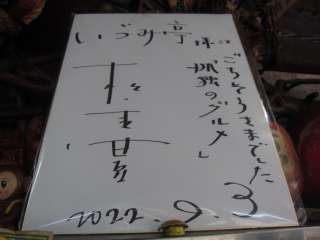 いづみ亭 様江
ごちそうさまでした
孤独のグルメ」
松重豊
2022.9.3